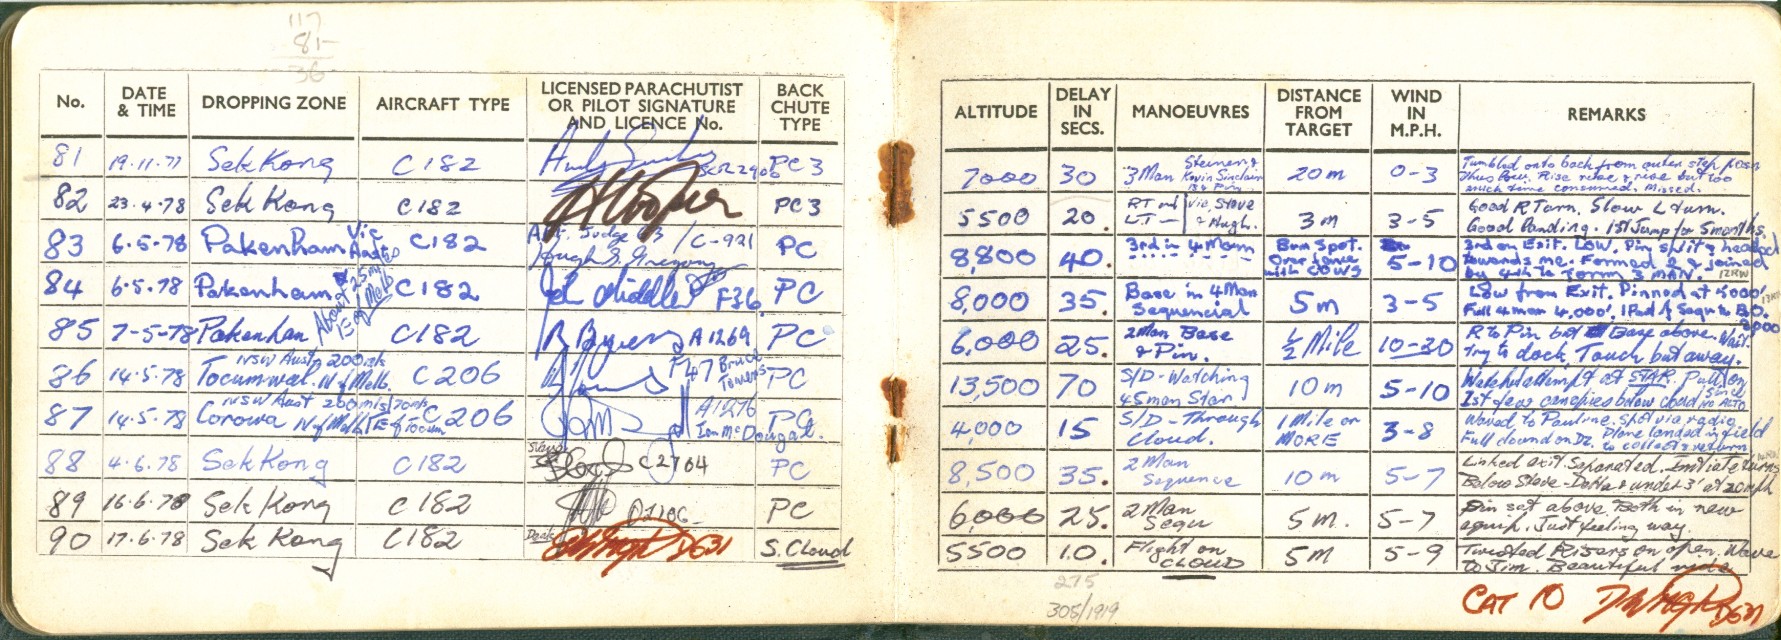 117
81-
36
No. DATE & TIME DROPPING ZONE AIRCRAFT TYPE LICENSED PARACHUTIST OR PILOT SIGNATURE AND LICENCE No. BACK CHUTE TYPE
81 19.11.77 Sek Kong C182 PC3
82 23.4.78 Sek Kong C182 PC3
83 6.5.78 Pakenham Vic C182 /C-921 PC
84 6.5.78 Pakenham C182 F36. PC
85 7-5-78 Pakenham C182 A1269 PC
86 14.5.78 NSW Aust 200mls Tocumwal. N of Melb. C206 F47 Bruce Towers PC
87 14.5.78 NSW Aust 200mls Corowa N of Melb C206 A1276 Ian McDougal. PC
88 4.6.78 Sek Kong C182 C2764 PC
89 16.6.78 Sek Kong C182 PC
90 17.6.78 Sek Kong C182 D631 S. Cloud
ALTITUDE DELAY IN SECS. MANOEUVRES DISTANCE FROM TARGET WIND IN M.P.H. REMARKS
7000 30 3 Man Kevin Sinclair 20m 0-3 Tumbled onto back from outer step
much time consumed. Missed.
5500 20. RT LT 3m 3-5 Good R Turn. Slow L turn.
Good Landing. 1st Jump for 5 months.
8,800 40. 3rd in 4 Man Bum Spot. Over fence with cows 5-10 3rd on Exit. Low. Pin split & headed
towards me. Formed 2 & joined
by 4th to form 3 MAN.
8,000 35. Base in 4 Man Sequencial 5m 3-5 Low from Exit. Pinned at 5000'
Full 4 man 4,000'.
6,000 25. 2 Man Base & Pin. ½ Mile 10-30 R to Pin but Base above. Wait.
Try to dock. Touch but away.
13,500 70 S/D-Watching 45 man Star 10m 5-10 Watched attempt at STAR. Pull on
1st few canopies below cloud
4,000 15 S/D-Through Cloud. 1 Mile or MORE 3-8 Waved to Pauline. Spot via radio
Full down on DZ. Plane landed in field
to collect & return
8,500 35. 2 Man Sequence 10m 5-7 Linked exit. Separated. Initiate turns
Below Steve-
6,000 25. 2 Man Sequ 5m. 5-7 Pin set above. Both in new
equip. Just feeling way.
5500 10. Flight on CLOUD 5m 5-9 Twisted Risers on open. Wave
to Jim. Beautiful
275
305/1919
CAT 10 D631